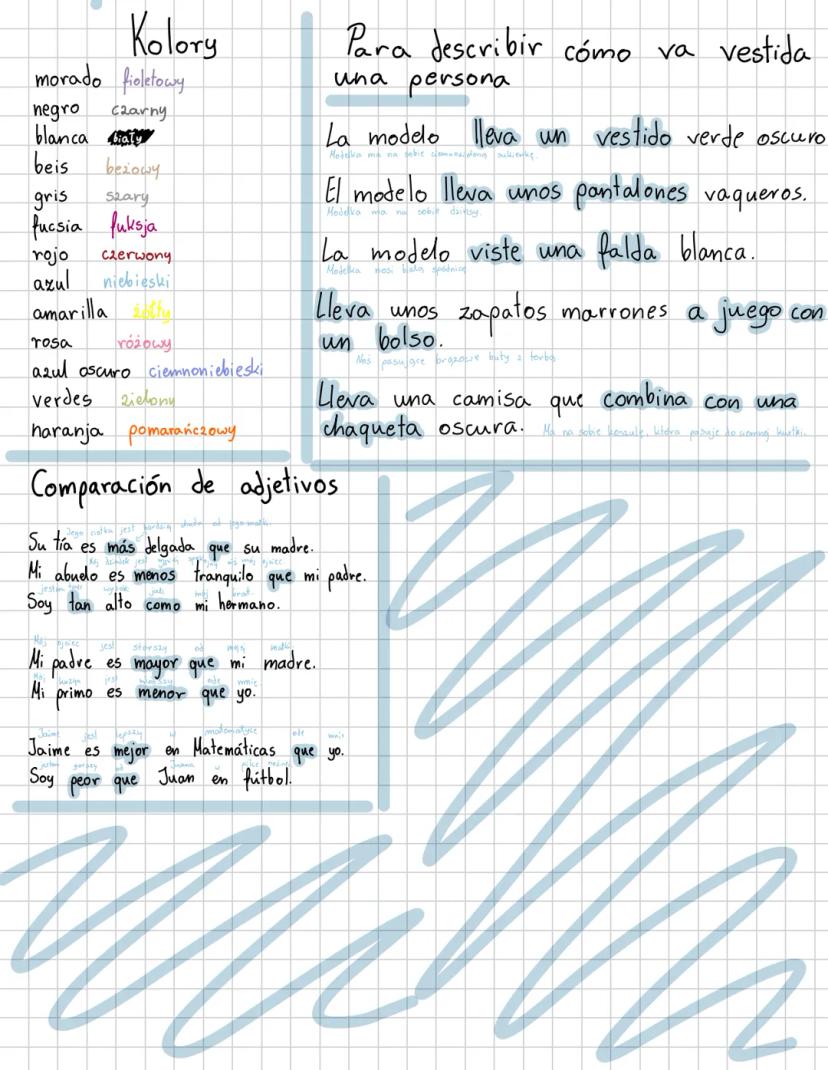 Kolory
morado fioletowy
negro czarny
blanca biały
beis beżowy
gris szary
fucsia fuksja
rojo czerwony
azul niebieski
amarilla żółty
rosa różowy
azul oscuro ciemnoniebieski
verdes zielony
naranja pomarańczowy
Para describir cómo va vestida
una persona
La modelo lleva un vestido verde oscuro
Modelka ma na sobie ciemnozieloną sukienkę.
El modelo lleva unos pantalones vaqueros.
Modelka ma na sobie dżinsy.
La modelo viste una falda blanca.
Modelka nosi białą spódnicę
Lleva unos zapatos marrones a juego con
un bolso.
pasujące brązowe buty z torbą
Lleva una camisa que combina con una
chaqueta oscura. Ma na sobie koszulę, która pasuje do ciemnej kurtki.
Comparación de adjetivos
Jego ciotka jest bardziej chuda od jego matki.
Su tía es más delgada que su madre.
Mój dziadek jest mój ojciec
Mi abuelo es menos tranquilo que mi padre.
jestem tak wysoki jak mój brat.
Soy tan alto como mi hermano.
Mój ojciec jest starszy od mojej matki
Mi padre es mayor que mi madre.
Mój kuzyn jest młodszy ode mnie.
Mi primo es menor que yo.
Jaime jest lepszy w matematyce ode mnie
Jaime es mejor en Matemáticas que yo.
jestem gorszy od Juana w piłce nożnej
Soy peor que Juan en fútbol.